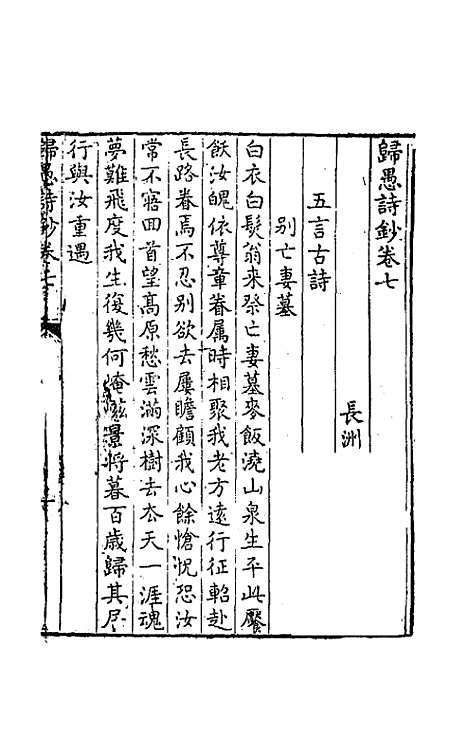 歸愚詩鈔卷七
長洲
五言古詩
別亡妻墓
白衣白髮翁來祭亡妻墓麥飯澆山泉生平此饜
飫汝魄依尊章眷属時相聚我老方遠行征軺赴
長路眷焉不忍別欲去屢瞻顧我心餘愴怳恐汝
常不寤回首望高原愁雲滿深樹去去天一涯魂
夢難飛度我生復幾何崦嵫景將暮百歲歸其居
行與汝重遇
歸愚詩鈔卷七